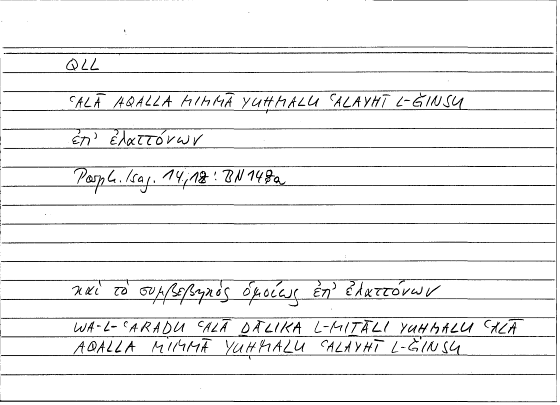 QLL
ʿALĀ AQALLA MIMMĀ YUḤMALU ʿALAYHĪ L-ǦINSU
ἐπ' ἐλαττόνων
Porph. Isag. 14,18: BN 148a
καὶ τὸ συμβεβηκὸς ὁμοίως ἐπ' ἐλαττόνων
WA-L-ʿARADU ʿALĀ ḎĀLIKA L-MIṮĀLI YUḤMALU ʿALĀ
AQALLA MIMMĀ YUḤMALU ʿALAYHĪ L-ǦINSU